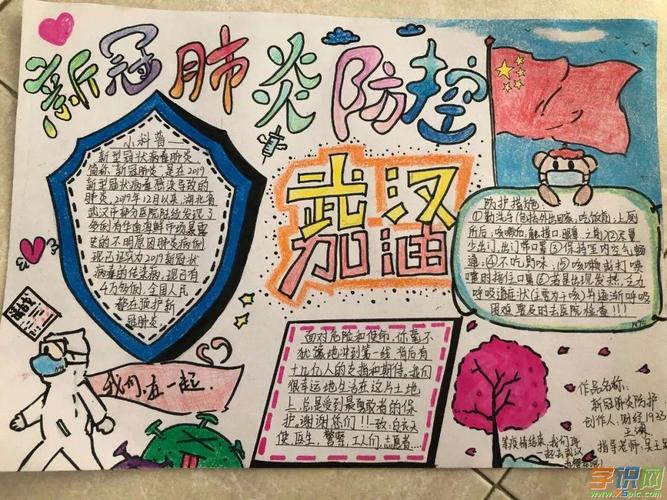 新冠肺炎防控
小科普
新型冠状病毒肺炎,
简称"新冠肺炎",是在2019
新型冠状病毒感染导致的
肺炎,2019年12月以来,湖北省
武汉市部分医院陆续发现了
多例有华南海鲜市场暴露
史的不明原因肺炎病例,
现已证实为2019新冠状
病毒的传染病,现已有
4万多例,全国人民
都在预防新
冠肺炎
武汉
加油
防护指您
①勤洗手(包括外出回家,吃饭前,上厕
所后,咳嗽后,触摸口眼鼻之前)②尽量
少出门,出门带口罩③保持室内空气畅
通;④不吃野味;⑤咳嗽或打喷
嚏时捂住口鼻⑥若是出现发热、乏力
呼吸道症状(主要为干咳)并逐渐呼吸
困难,要及时去医院检查!!!
请战
我们在一起
面对危险和使命,你毫不
犹豫地冲到第一线,背后有
十九亿人的支持和期待,我们
很幸运地生活在这片土地
上,总是受到最勇敢者的保
护。谢谢你们!!!致:白衣天
使医生、警察、工人们、志愿者...
等疫情结束,我们再
一起去武汉
作品名称:
新冠肺炎防护
创作人:财经1933
指导老师:吴土
学识网
www.xspic.com